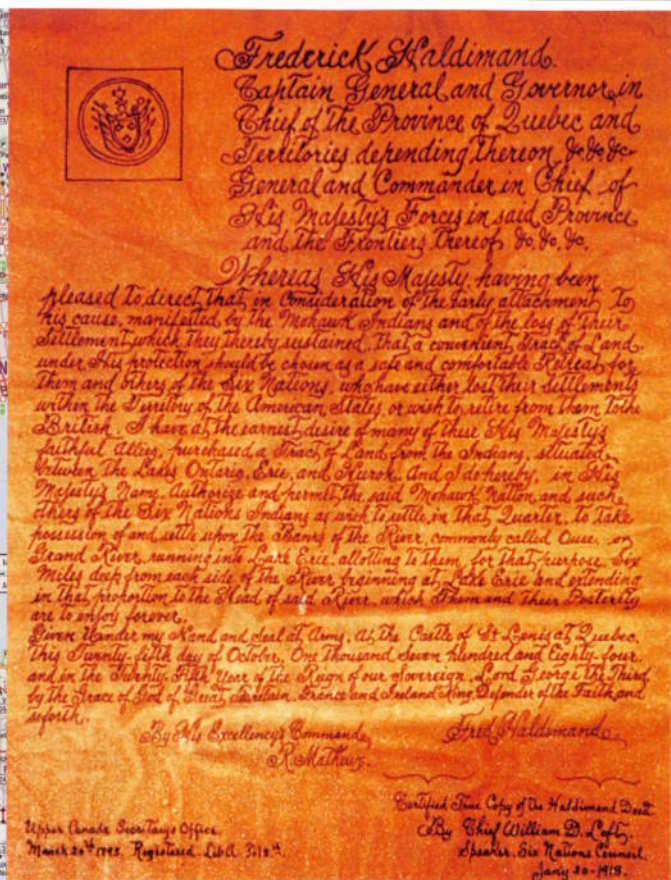 Frederick Haldimand.
Captain General and Governor in
Chief of The Province of Quebec and
Territories depending Thereon, &c &c &c
General and Commander in Chief of
His Majesty's Forces in said Province
and The Frontiers Thereof &c, &c, &c.
Whereas His Majesty having been
pleased to direct, that, in Consideration of the Early attachment To
his cause, manifested by the Mohawk Indians and of the loss of Their
Settlement which they thereby sustained, That a convenient Tract of Land
under His protection should be chosen as a safe and comfortable Retreat for
Them and others of the Six Nations, who have either lost Their Settlements
within the Territory of the American States, or wish to retire from Them to the
British. I have at the earnest desire of many of these His Majesty's
faithful Allies, purchased a Tract of Land from the Indians, situated
between the Lakes Ontario, Erie, and Huron. And I do hereby, in His
Majesty's Name, Authorize and permit, the said Mohawk Nation and such
others of the Six Nations Indians as wish to settle in That Quarter, to take
possession of and settle upon The Banks of the River, commonly called Ouse, or
Grand River, running into Lake Erie, allotting to Them for That purpose, Six
Miles deep from each side of the River beginning at Lake Erie and extending
in that proportion to the Head of said River, which Them and Their Posterity
are to enjoy forever.
Given Under my Hand and Seal at Arms, At the Castle of St Lewis at Quebec,
this Twenty-fifth day of October, One Thousand Seven hundred and Eighty-four
and in the Twenty-Fifth Year of the Reign of our Sovereign Lord George The Third
by the Grace of God of Great Britain, France and Ireland King, Defender of the Faith and
soforth.
By His Excellency's Command, Fred Haldimand.
R. Mathews.
Certified True Copy of the Haldimand Deed
By Chief William D. Loft,
Speaker, Six Nations Council
Jany 20 - 1918.
Upper Canada Secretarys Office.
March 20th 1795. Registered. Lib A.